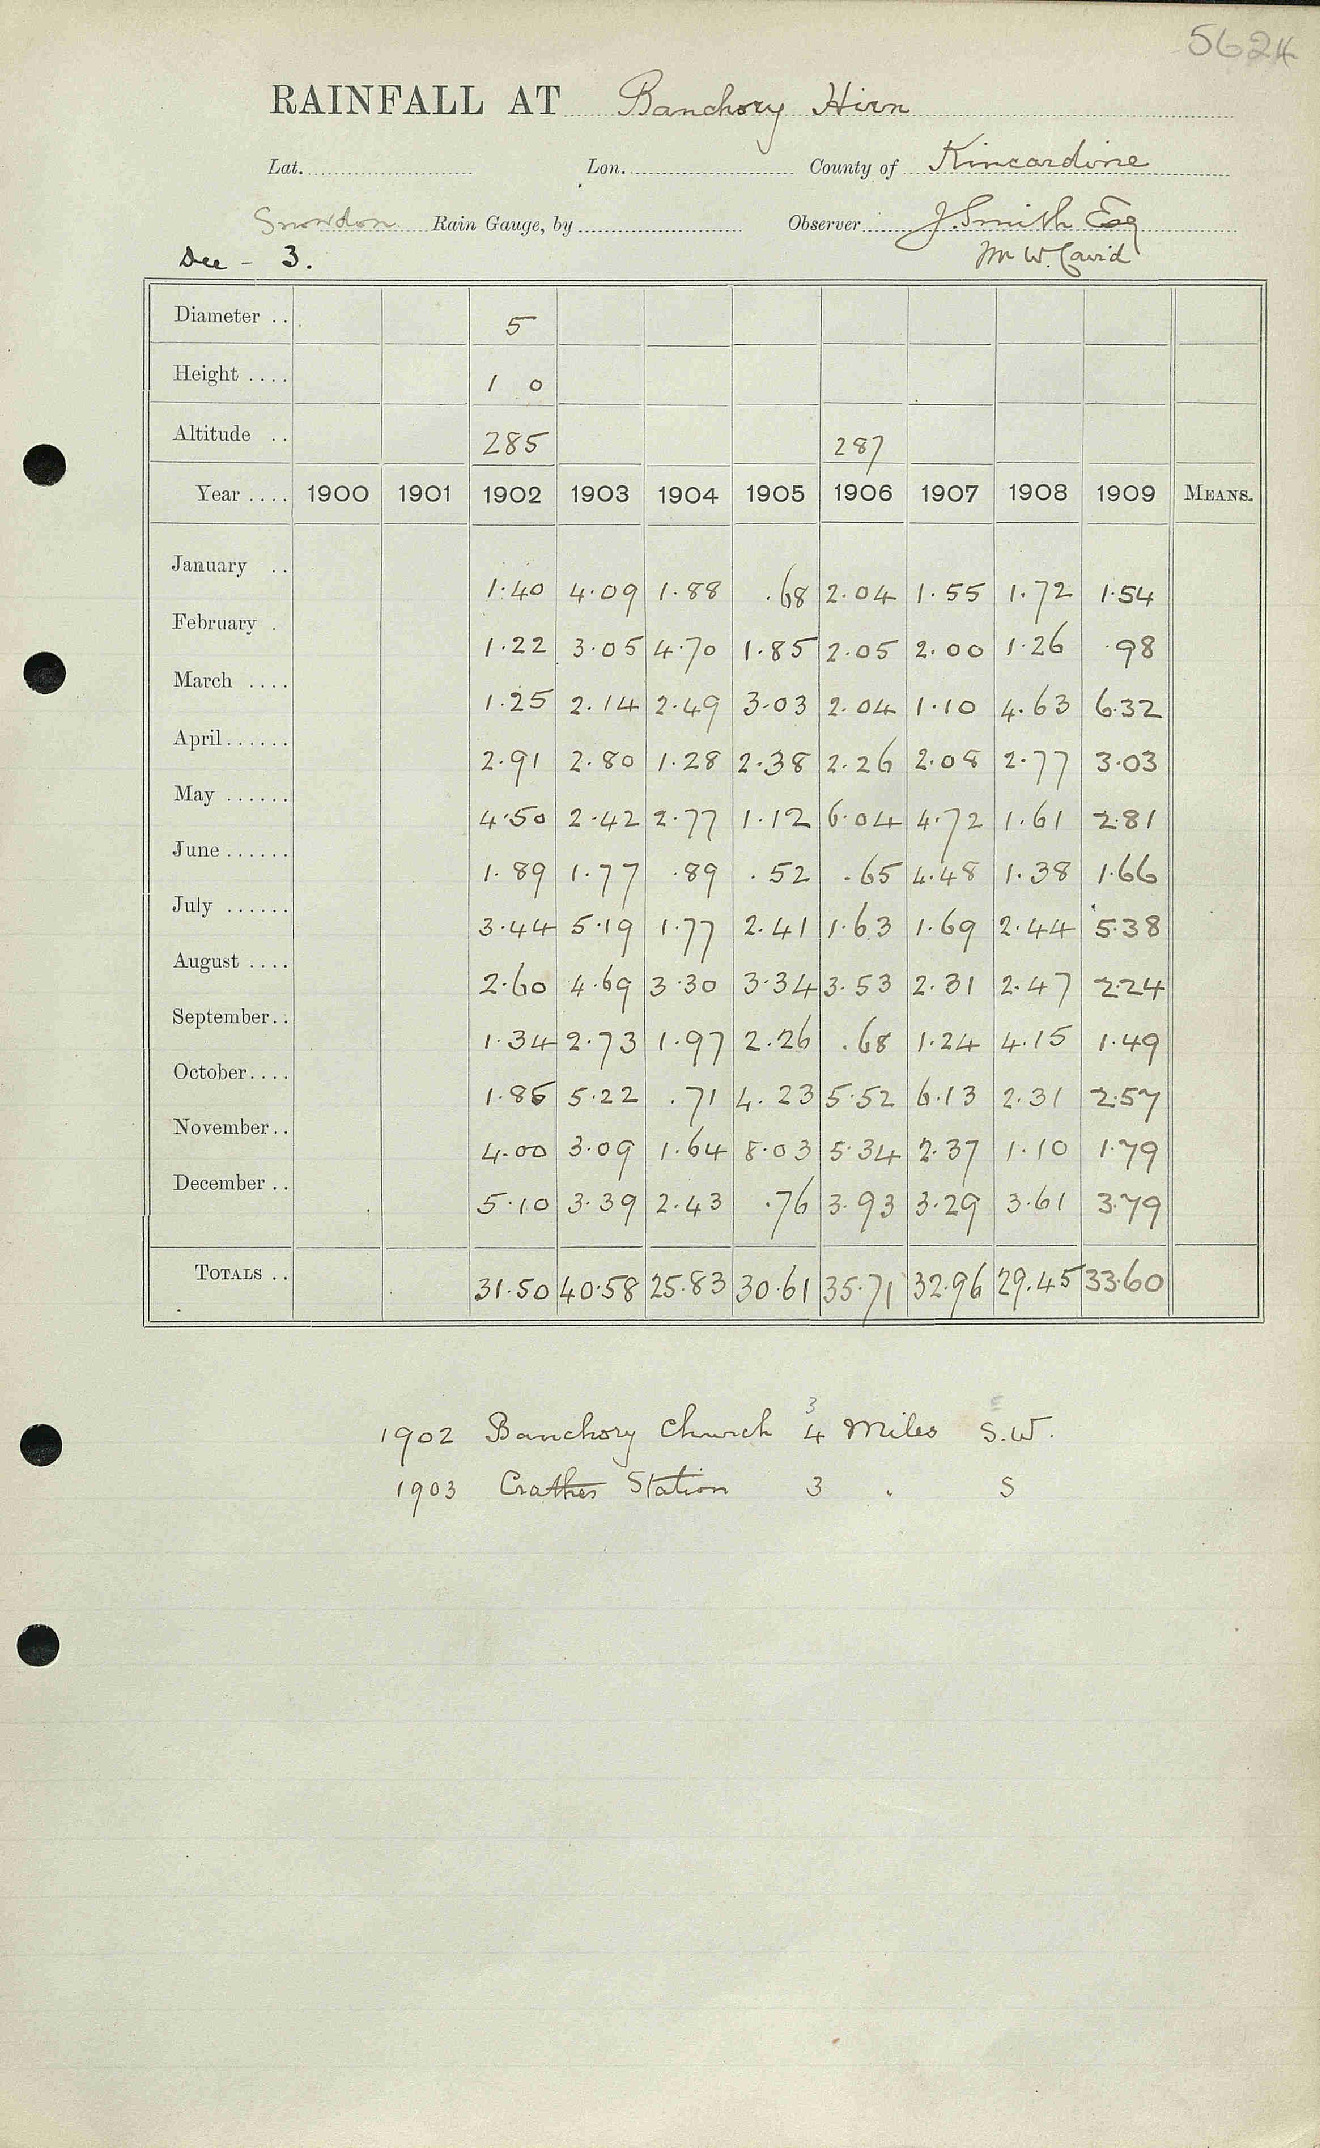 5624
RAINFALL AT Banchory Hirn
Lat. Lon. County of Kincardine
Snowdon Rain Gauge, by Observer J. Smith Esq
Dee - 3. Mr W. Cavid
Diameter .. 5
Height .... 1 0
Altitude .. 285 287
Year .... 1900 1901 1902 1903 1904 1905 1906 1907 1908 1909 MEANS.
January .. 1.40 4.09 1.88 .68 2.04 1.55 1.72 1.54
February . 1.22 3.05 4.70 1.85 2.05 2.00 1.26 .98
March .... 1.25 2.14 2.49 3.03 2.04 1.10 4.63 6.32
April...... 2.91 2.80 1.28 2.38 2.26 2.08 2.77 3.03
May ...... 4.50 2.42 2.77 1.12 6.04 4.72 1.61 2.81
June ...... 1.89 1.77 .89 .52 .65 4.48 1.38 1.66
July ...... 3.44 5.19 1.77 2.41 1.63 1.69 2.44 5.38
August .... 2.60 4.69 3.30 3.34 3.53 2.31 2.47 2.24
September.. 1.34 2.73 1.97 2.26 .68 1.24 4.15 1.49
October.... 1.85 5.22 .71 4.23 5.52 6.13 2.31 2.57
November.. 4.00 3.09 1.64 8.03 5.34 2.37 1.10 1.79
December .. 5.10 3.39 2.43 .76 3.93 3.29 3.61 3.79
TOTALS .. 31.50 40.58 25.83 30.61 35.71 32.96 29.45 33.60
3
1902 Banchory Church 4 Miles S.W.
1903 Crathes Station 3 . S